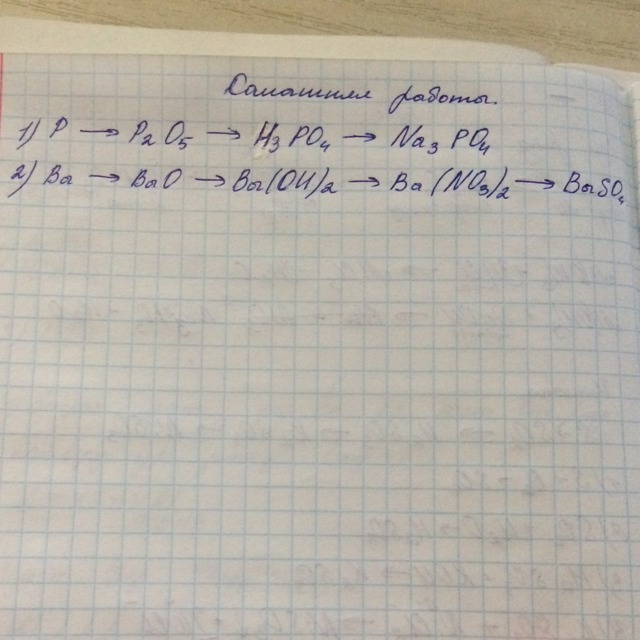 Домашняя работы.
1) P → P₂O₅ → H₃PO₄ → Na₃PO₄
2) Ba → BaO → Ba(OH)₂ → Ba(NO₃)₂ → BaSO₄